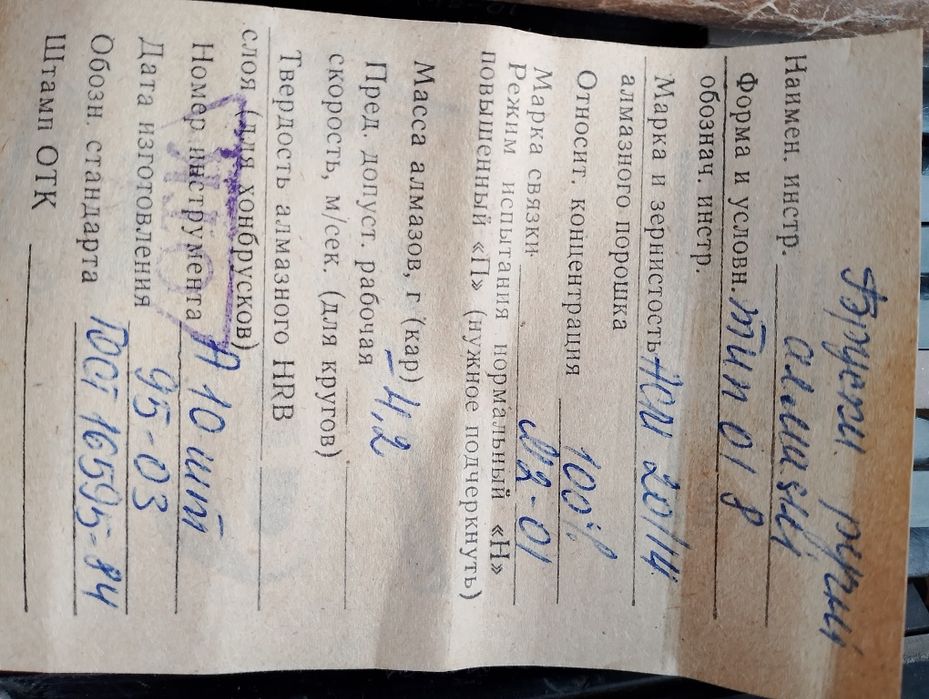 Бруски ручн
Наимен. инстр. алмазн
Форма и условн. тип 01 8
обознач. инстр.
Марка и зернистость АСМ 20/14
алмазного порошка
Относит. концентрация 100%
Марка связки М2-01
Режим испытания нормальный «Н»
повышенный «П» (нужное подчеркнуть)
Масса алмазов, г (кар) 4,2
Пред. допуст. рабочая
скорость, м/сек. (для кругов)
Твердость алмазного HRB
слоя (для хонбрусков)
Номер инструмента 10 шт
Дата изготовления 95-03
Обозн. стандарта ГОСТ 16595-84
Штамп ОТК